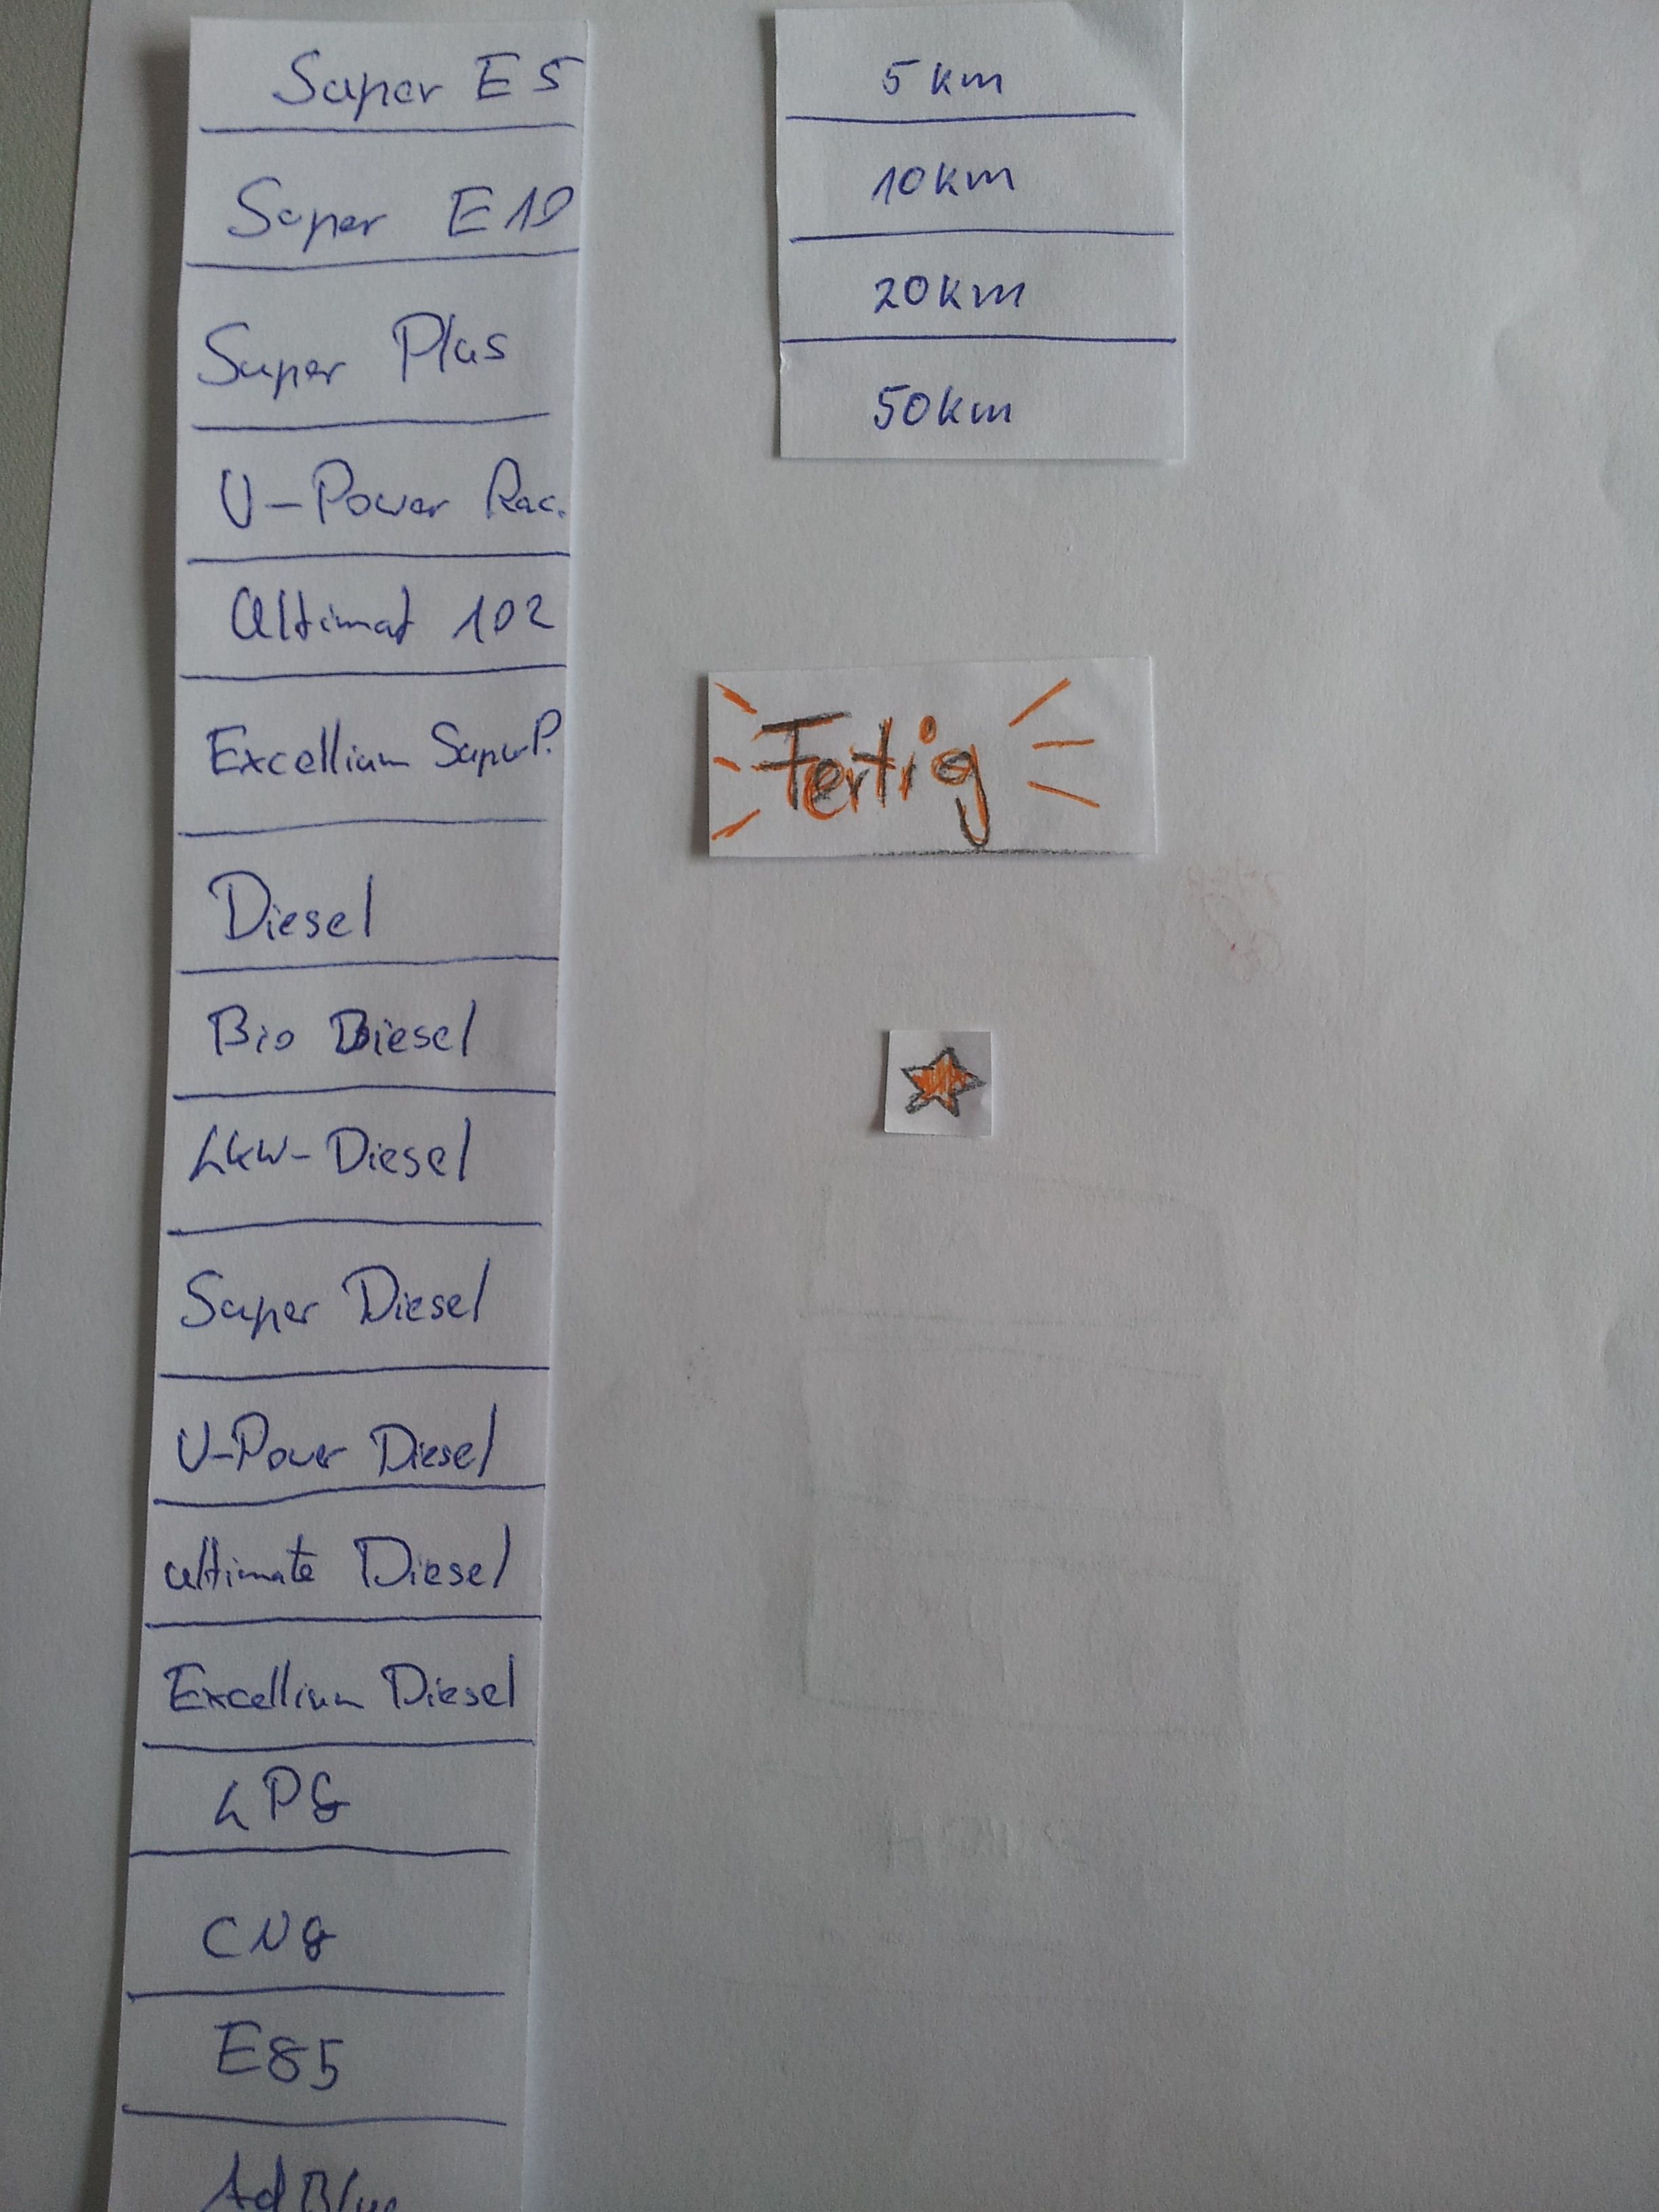 Super E5
Super E10
Super Plus
V-Power Rac.
Ultimat 102
Excellium SuperP.
Diesel
Bio Diesel
LKW-Diesel
Super Diesel
V-Power Diesel
ultimate Diesel
Excellium Diesel
LPG
CNG
E85
AdBlue
5 km
10 km
20 km
50 km
Fertig